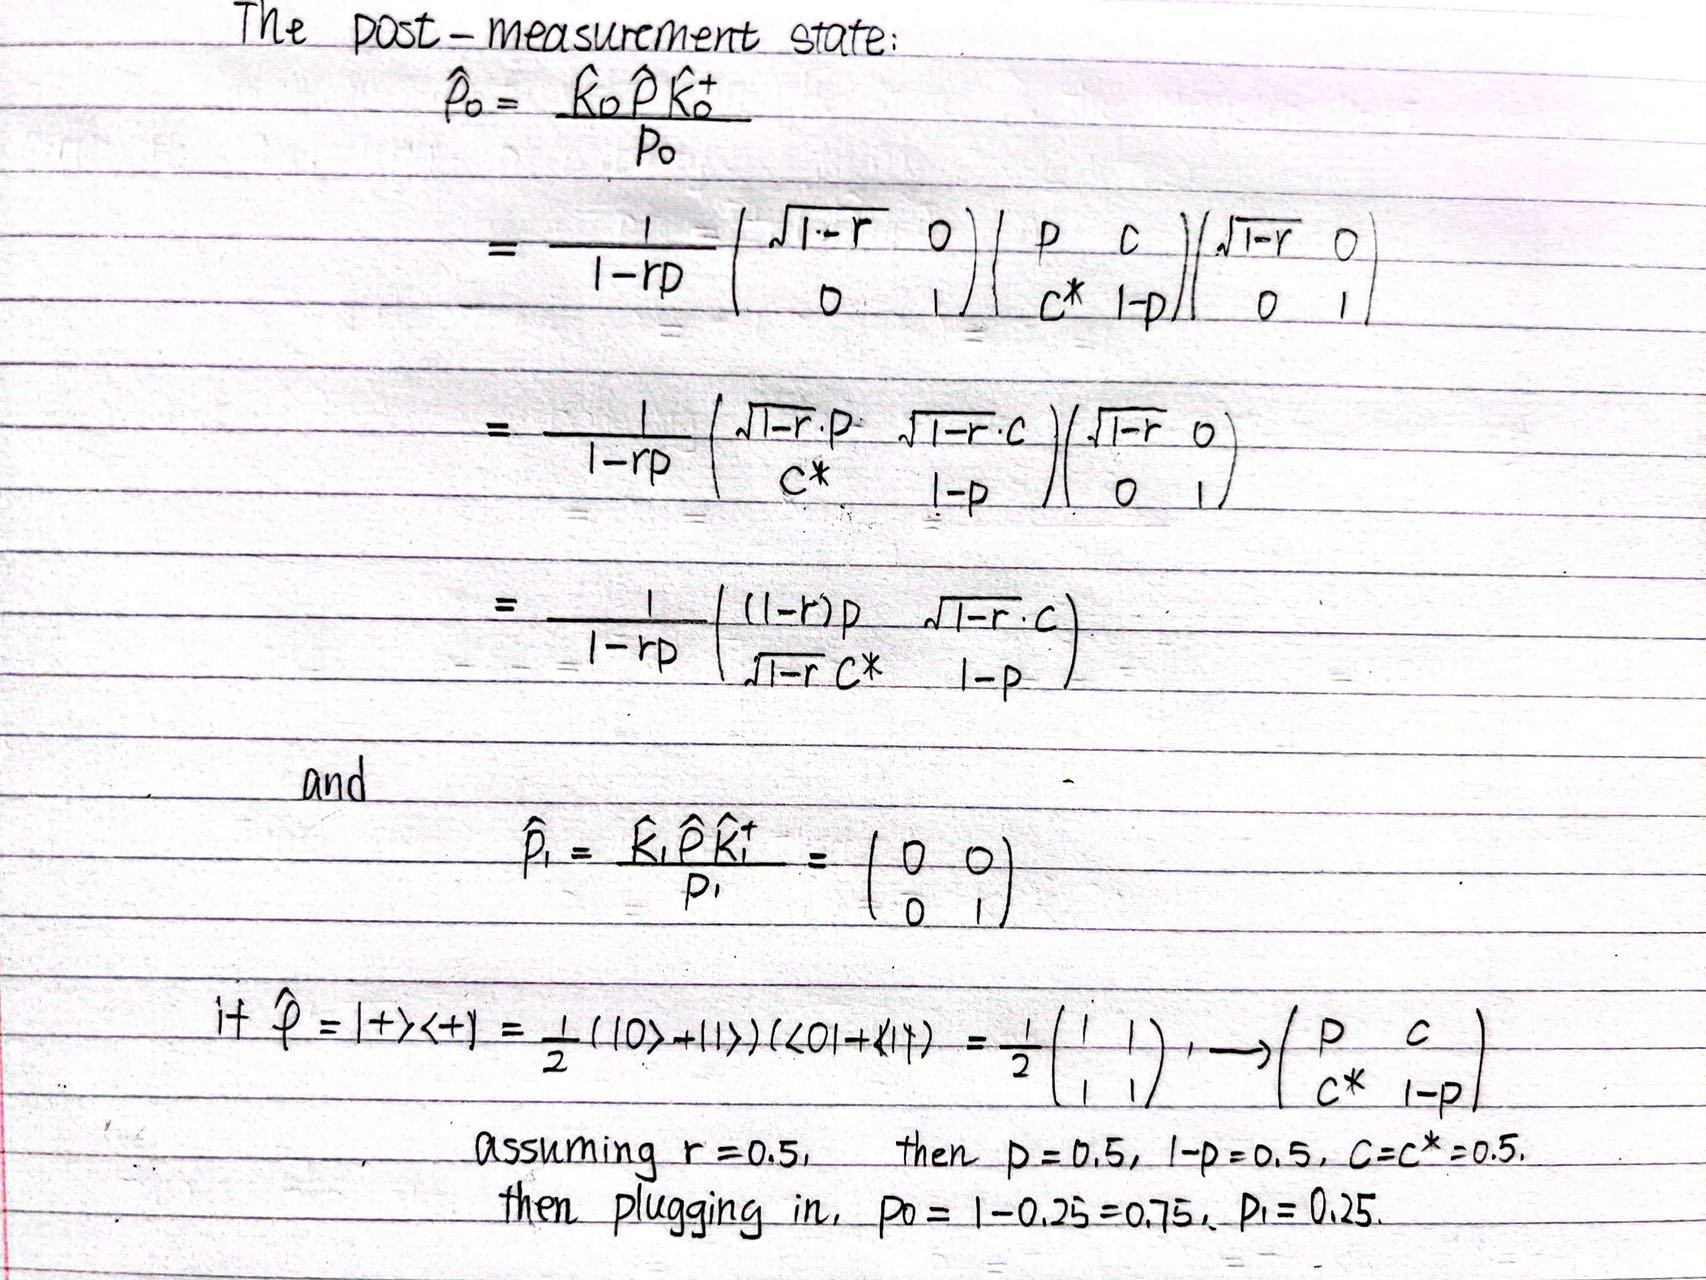 The post-measurement state:
ρ̂₀ = K̂₀ ρ̂ K̂₀⁺ / p₀
= 1/(1-rp) ( √(1-r) 0 ; 0 1 ) ( p c ; c* 1-p ) ( √(1-r) 0 ; 0 1 )
= 1/(1-rp) ( √(1-r)·p √(1-r)·c ; c* 1-p ) ( √(1-r) 0 ; 0 1 )
= 1/(1-rp) ( (1-r)p √(1-r)·c ; √(1-r) c* 1-p )
and
ρ̂₁ = K̂₁ ρ̂ K̂₁⁺ / p₁ = ( 0 0 ; 0 1 )
if ρ̂ = |+><+| = 1/2 (|0>+|1>)(<0|+<1|) = 1/2 ( 1 1 ; 1 1 ), → ( p c ; c* 1-p )
assuming r=0.5, then p=0.5, 1-p=0.5, c=c*=0.5.
then plugging in, p₀ = 1-0.25=0.75, p₁=0.25.